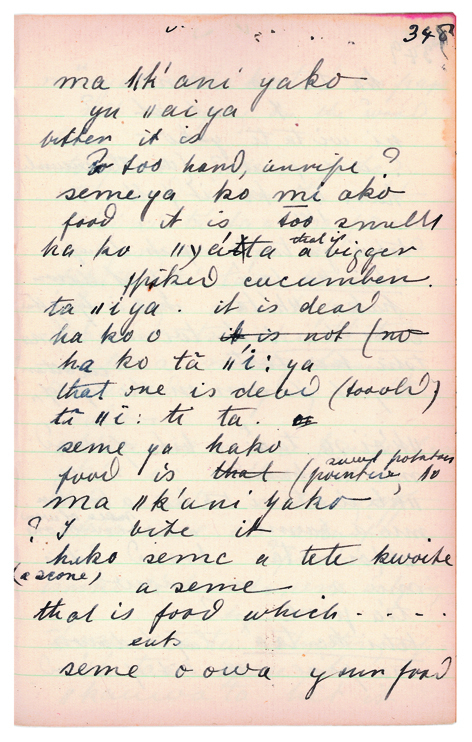 348
ma ǁk'ani yako
yu ǁaiya
bitten it is
too hard, unripe?
seme ya ko mi oko
food it is too small
ha ko ǁyátta that is a bigger
spiked cucumber.
ta ǁiya. it is dead
ha ko o it is not (no
ha ko tā ǁí: ya
that one is dead (toooh)
tā ǁī: ti ta.
seme ya hako
food is that (pointing, to
sweet potatoes
ma ǁk'ani yako,
? I bite it
hako seme a tete kwoite
(a scone) a seme
that is food which - - - -
eats
seme o owa your food